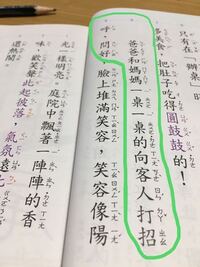 只有在「辦桌」時
多美食,把肚子吃得圓鼓鼓的!
爸爸和媽媽一桌一桌的向客人打招
呼、問好,臉上堆滿笑容,笑容像陽
光一樣明亮。庭院中飄著一陣陣的香
味,歡笑聲此起彼落,氣氛
還熱鬧